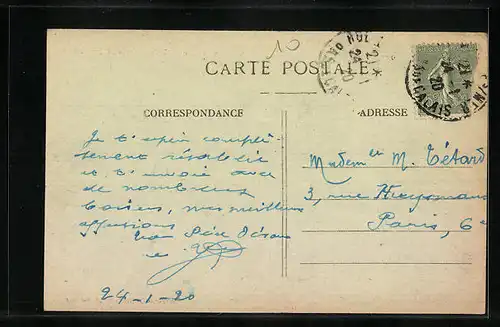 10
CARTE POSTALE
CORRESPONDANCE
ADRESSE
Je t'espère complè-
tement rétablie
et t'envoie avec
de nombreux
baisers, mes meilleures
affections
Ton Père
24-1-20
Mademelle M. Tétard
3, rue Huysmans
Paris, 6e
CALAIS
24-1
20